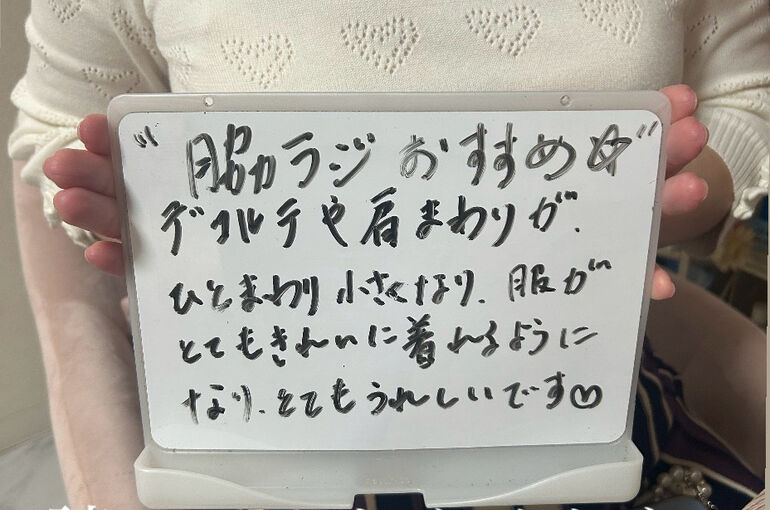 "脇カラジ おすすめ☆"
デコルテや肩まわりが、
ひとまわり小さくなり、服が
とてもきれいに着れるように
なり、とてもうれしいです♡